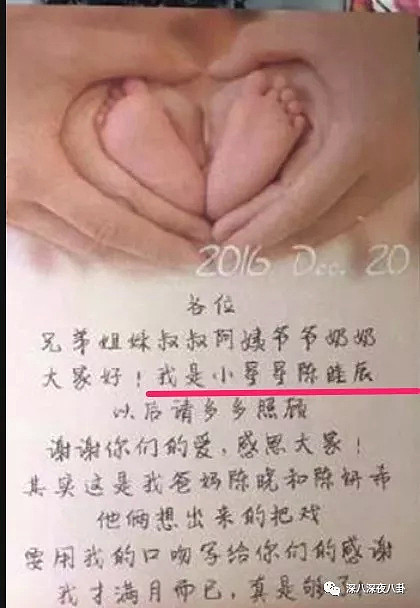 2016 Dec. 20
各位
兄弟姐妹叔叔阿姨爷爷奶奶
大家好!我是小哥哥陈睦辰
以后请多多照顾
谢谢你们的爱,感恩大家!
其实这是我爸妈陈晓和陈妍希
他俩想出来的把戏
要用我的口吻写给你们的感谢
我才满月而已,真是够了
深八深夜八卦